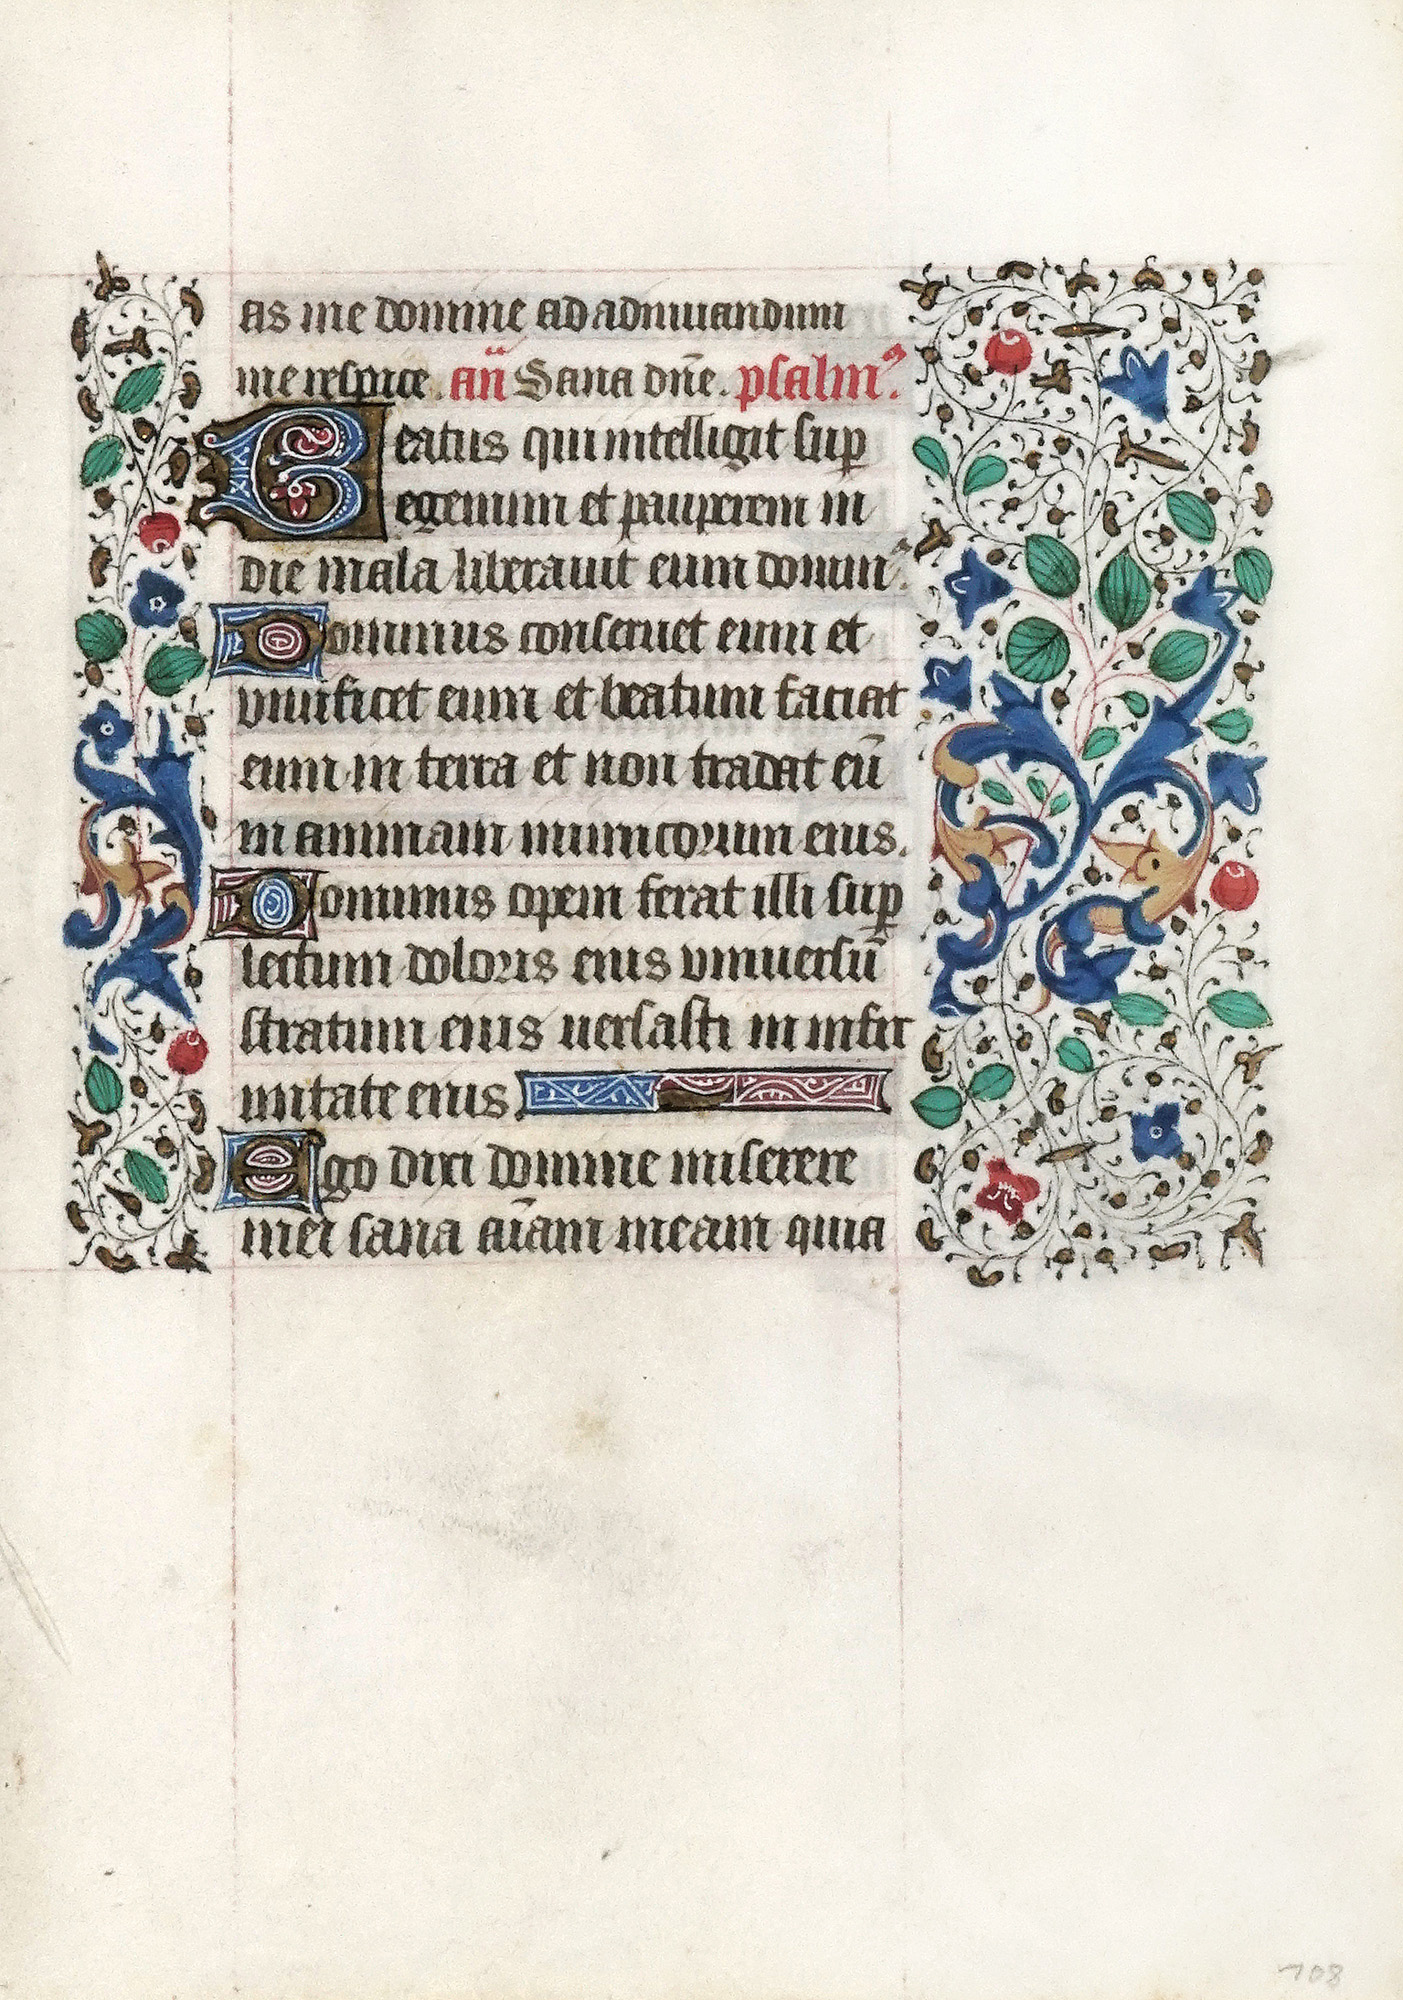 as me domine ad adiuuandum
me respice. an̄ Sana dn̄e. psalm9.
Beatus qui intelligit sup
egenum et pauperem in
die mala liberauit eum domin9.
Dominus conseruet eum et
viuificet eum et beatum faciat
eum in terra et non tradat eū
in animam inimicorum eius.
Dominus opem ferat illi sup
lectum doloris eius vniuersū
stratum eius uersasti in infir
mitate eius
Ego dixi domine miserere
mei sana aīam meam quia
108